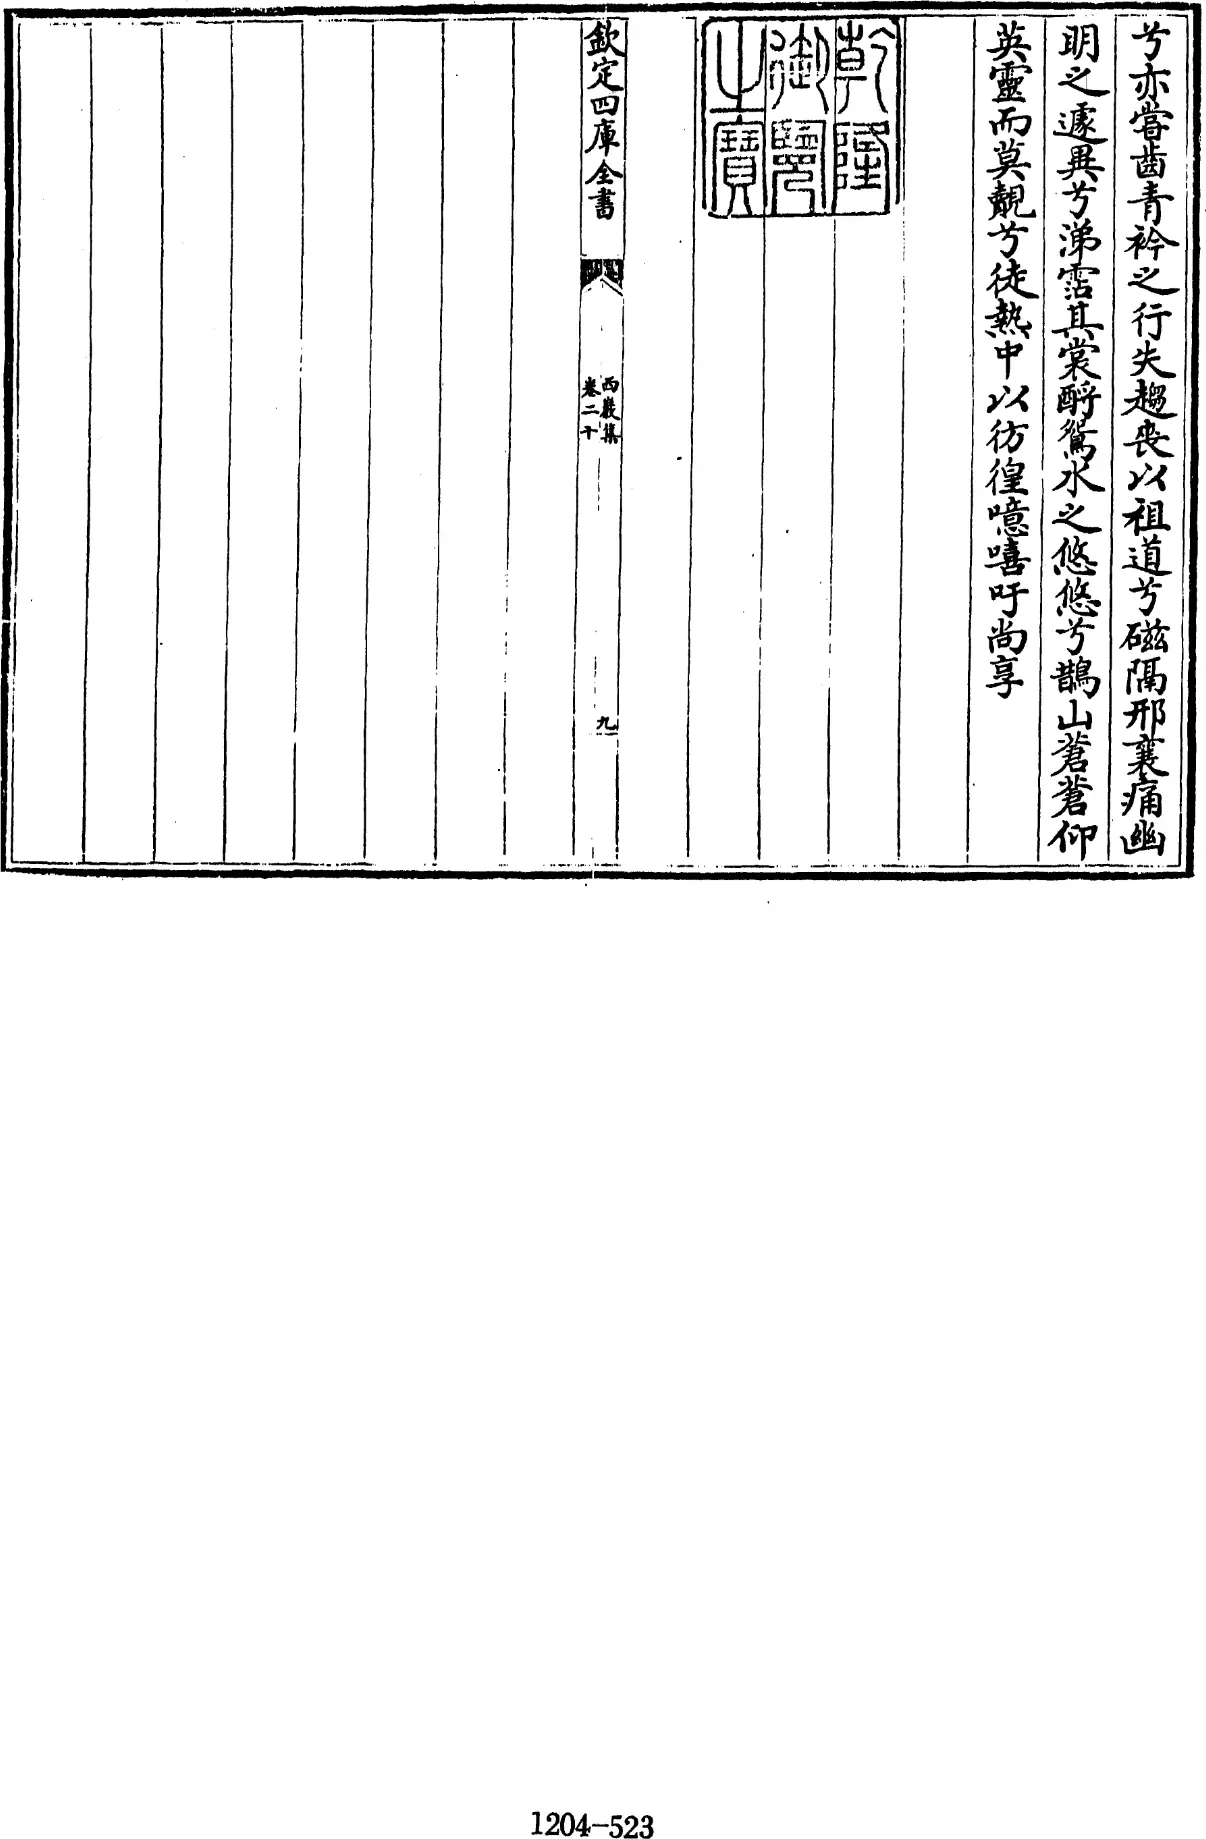 兮亦嘗齒青衿之行失趨喪以祖道兮磁隔邢襄痛幽
明之遽異兮涕霑其裳酹鴛水之悠悠兮鵲山蒼蒼仰
英靈而莫覿兮徒熱中以彷徨噫嘻吁尚享
乾隆
御覽
之寶
欽定四庫全書
西巖集
卷二十
九
1204-523